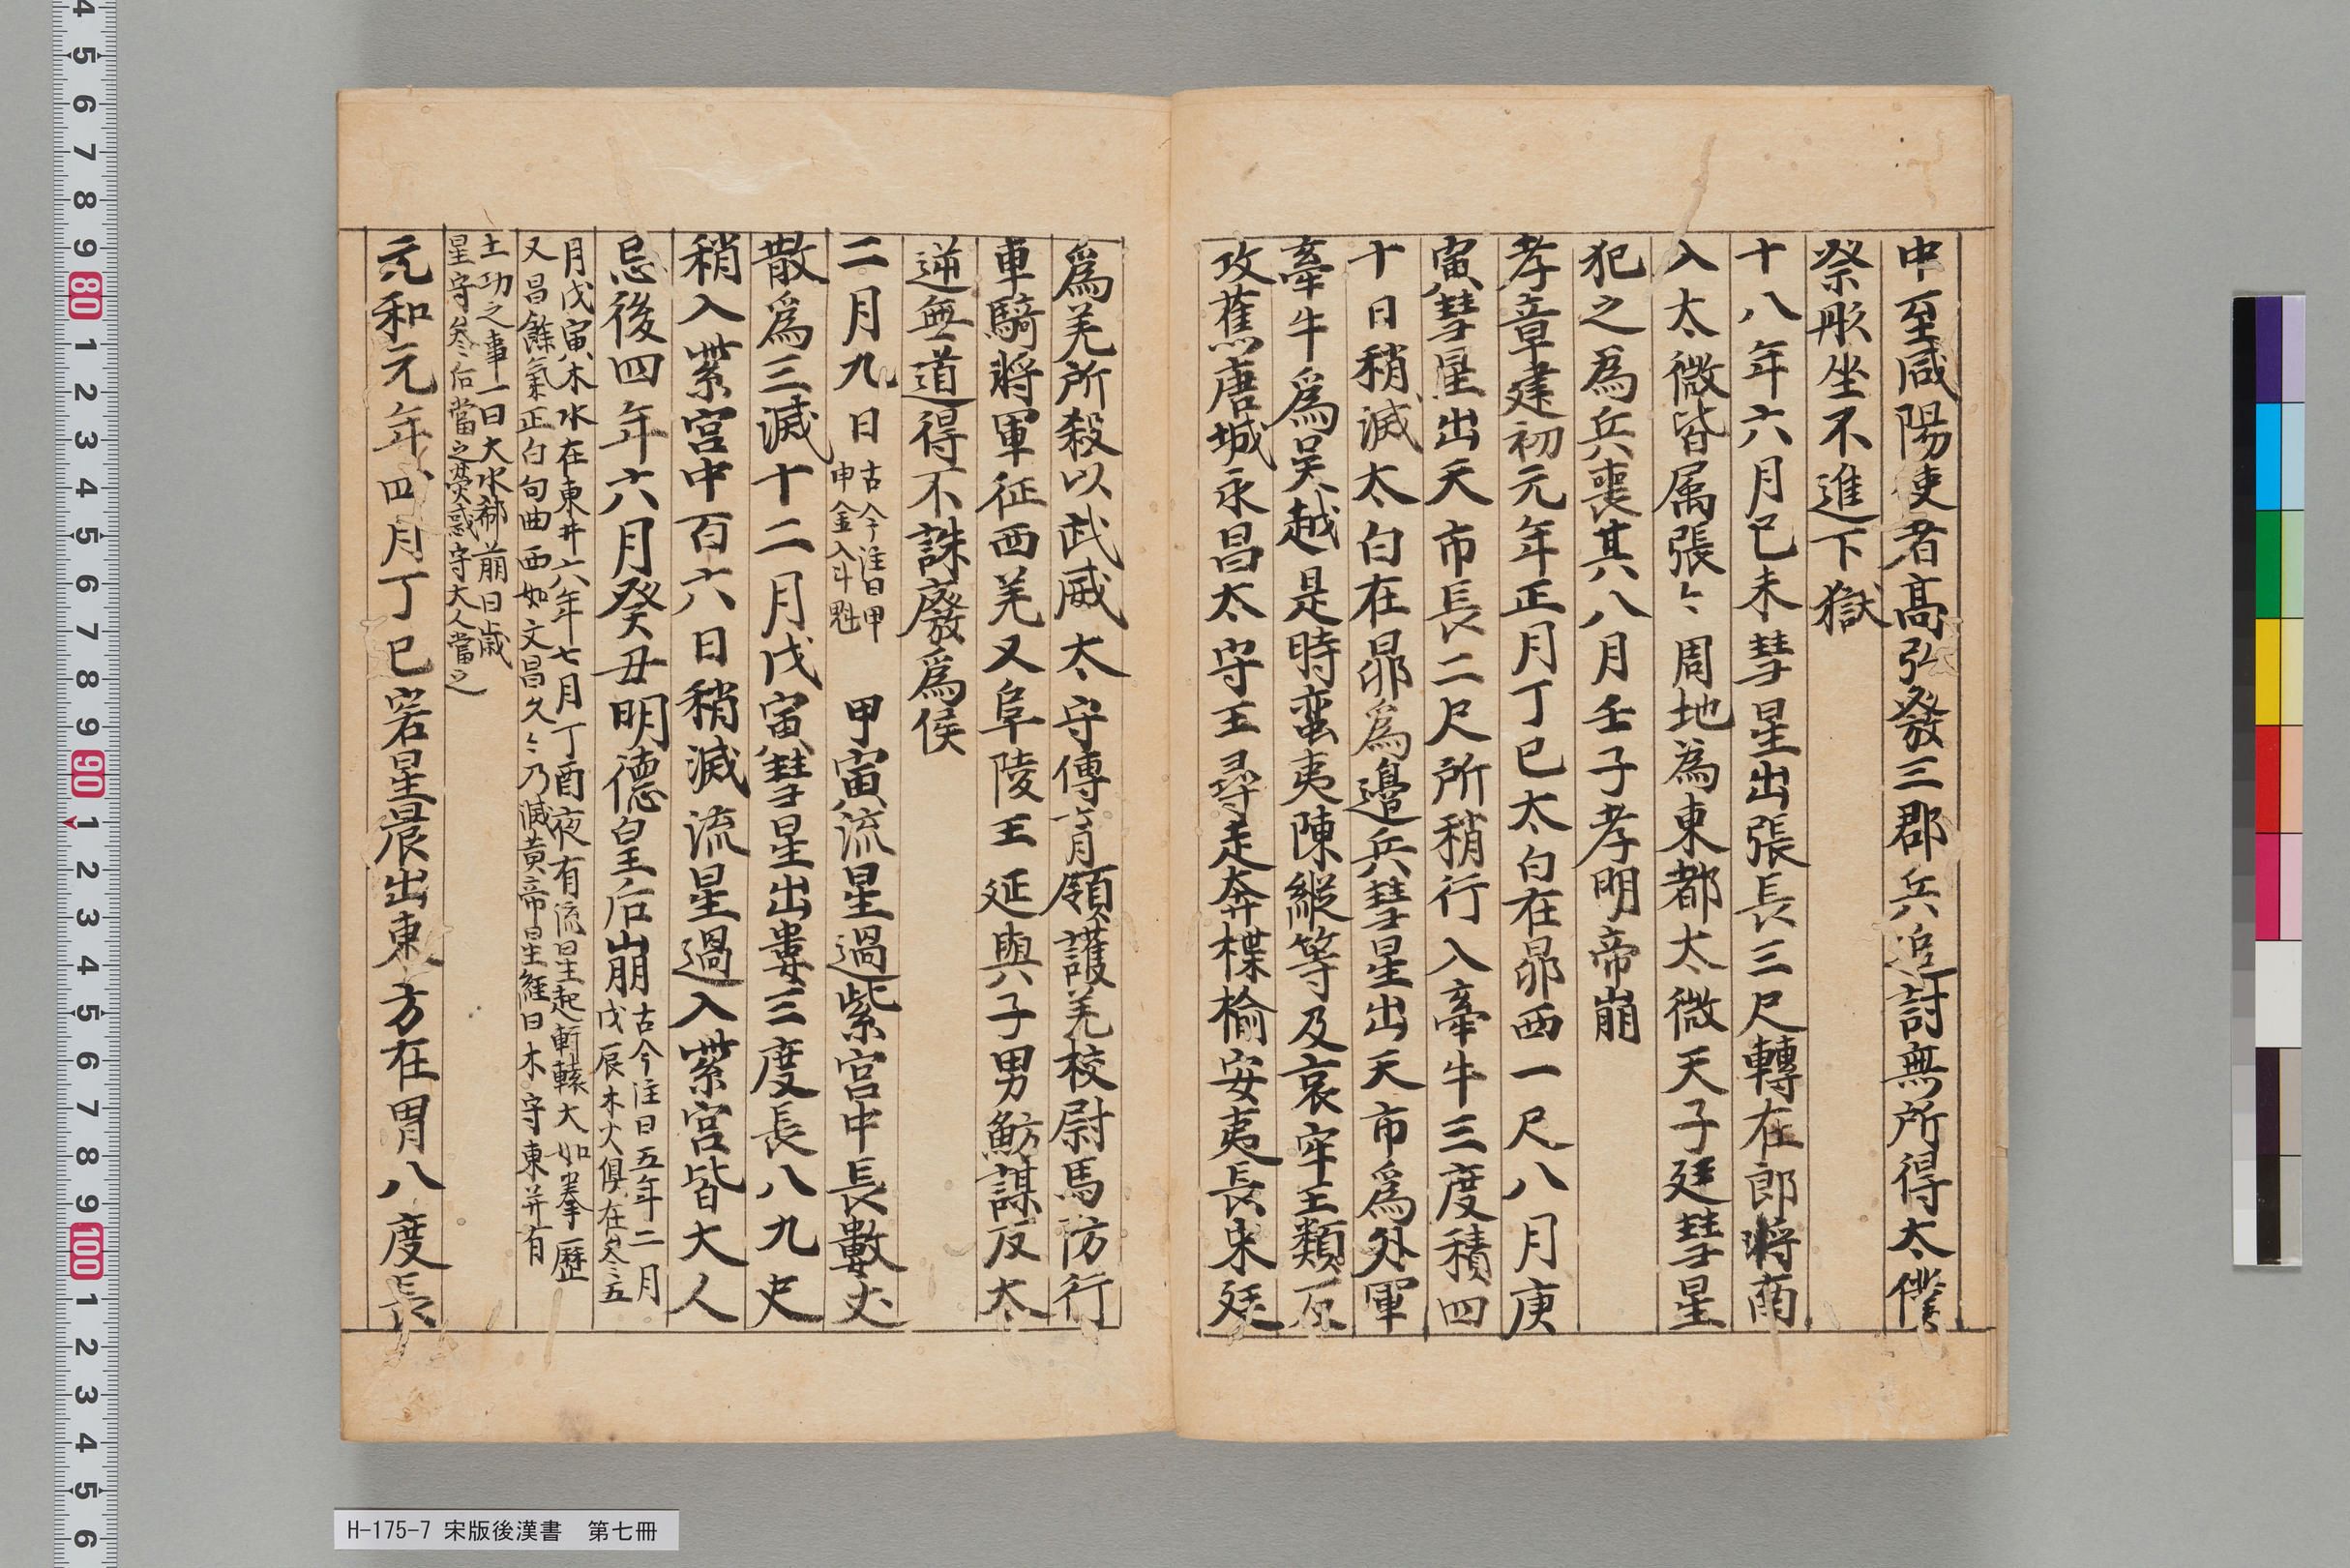 中至咸陽使者高弘發三郡兵追討無所得太僕
祭肜坐不進下獄
十八年六月己未彗星出張長三尺轉在郎將南
入太微皆属張〻周地為東都太微天子廷彗星
犯之為兵喪其八月壬子孝明帝崩
孝章建初元年正月丁巳太白在昴西一尺八月庚
寅彗星出天市長二尺所稍行入牽牛三度積四
十日稍滅太白在昴爲邊兵彗星出天市爲外軍
牽牛爲吴越是時蛮夷陳縱等及哀牢王類反
攻蕉唐城永昌太守王尋走奔楪榆安夷長宋延
爲羌所殺以武威太守傅育領護羌校尉馬防行
車騎將軍征西羌又阜陵王延與子男魴謀反大
逆無道得不誅廢爲侯
二月九日古今注曰甲申金入斗魁 甲寅流星過紫宮中長數丈
散爲三滅十二月戊寅彗星出婁三度長八九尺
稍入紫宮中百六日稍滅流星過入紫宮皆大人
忌後四年六月癸丑明德皇后崩古今注曰五年二月戊辰木火俱在参五
月戊寅木水在東井六年七月丁酉夜有流星起軒轅大如拳歷
又昌餘氣正白句曲西如文昌久〻乃滅黄帝星經曰木守東井有
土功之事一曰大水郗萠曰歲
星守参后當之熒惑守大人當之
元和元年四月丁巳客星晨出東方在胃八度長
H-175-7 宋版後漢書 第七冊
4 5 6 7 8 9 80 1 2 3 4 5 6 7 8 9 90 1 2 3 4 5 6 7 8 9 100 1 2 3 4 5 6